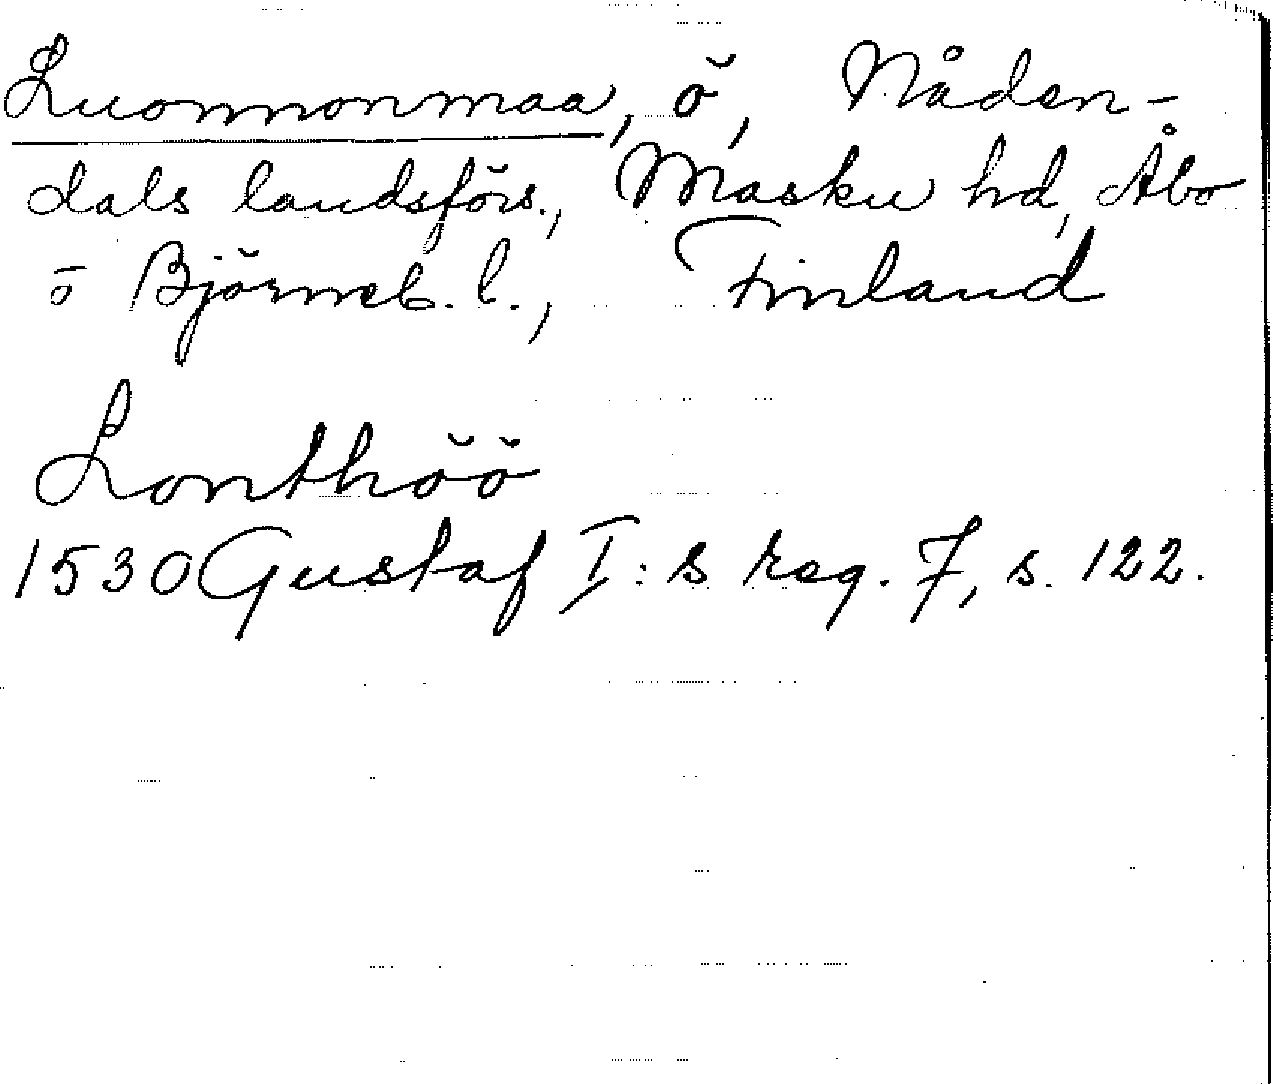 Luonnonmaa, ö, Nåden-
dals landsförs., Masku hd, Åbo
o Björneb. l., Finland
Lonthöö
1530 Gustaf I:s reg. 7, s. 122.